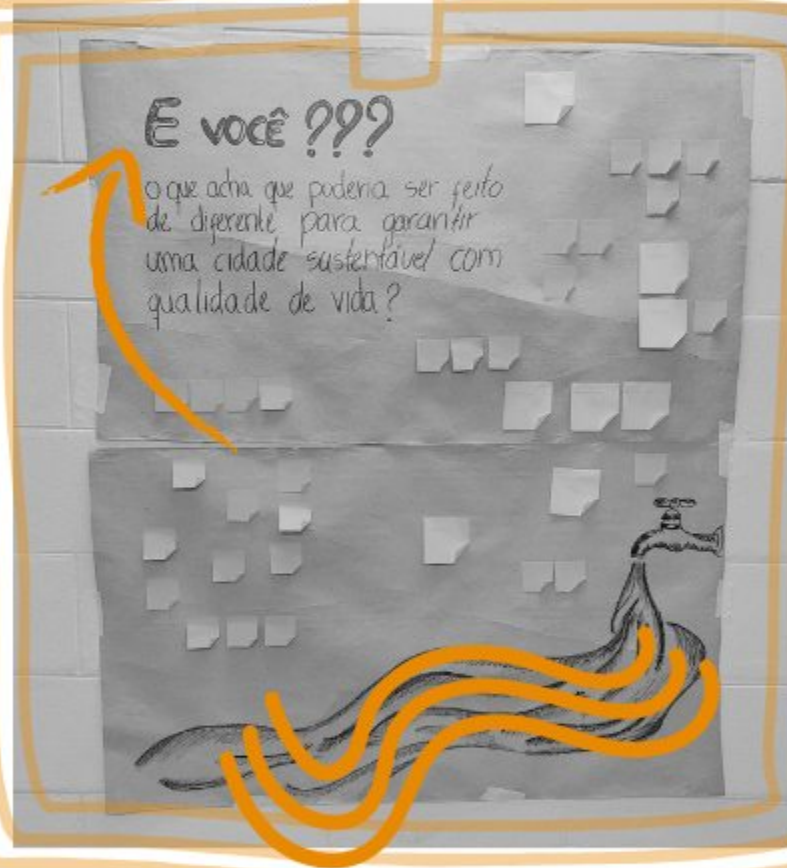 E você ???
o que acha que poderia ser feito
de diferente para garantir
uma cidade sustentável com
qualidade de vida?